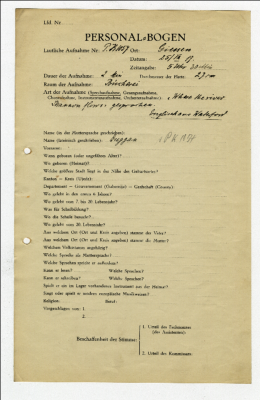 Lfd. Nr.
PERSONAL-BOGEN
Lautliche Aufnahme Nr. Ort: Giessen
Datum: 25/IX 17
Zeitangabe: 5 Uhr
Dauer der Aufnahme: 2 Min Durchmesser der Platte: 27 cm
Raum der Aufnahme:
Art der Aufnahme (Sprechaufnahme, Gesangsaufnahme,
Choraufnahme, Instrumentenaufnahme, Orchesteraufnahme):
gesprochen
PK 1151
Name (in der Muttersprache geschrieben):
Name (lateinisch geschrieben): Duggan
Vorname:
Wann geboren (oder ungefähres Alter)?
Wo geboren (Heimat)?
Welche größere Stadt liegt in der Nähe des Geburtsortes?
Kanton – Kreis (Ujedz):
Departement – Gouvernement (Gubernija) – Grafschaft (County):
Wo gelebt in den ersten 6 Jahren?
Wo gelebt vom 7. bis 20. Lebensjahr?
Was für Schulbildung?
Wo die Schule besucht?
Wo gelebt vom 20. Lebensjahr?
Aus welchem Ort (Ort und Kreis angeben) stammt der Vater?
Aus welchem Ort (Ort und Kreis angeben) stammt die Mutter?
Welchem Volksstamm angehörig?
Welche Sprache als Muttersprache?
Welche Sprachen spricht er außerdem?
Kann er lesen? Welche Sprachen?
Kann er schreiben? Welche Sprachen?
Spielt er ein im Lager vorhandenes Instrument aus der Heimat?
Singt oder spielt er modern europäische Musikweisen?
Religion: Beruf:
Vorgeschlagen von: 1.
2.
Beschaffenheit der Stimme:
1. Urteil des Fachmannes
(des Assistenten):
2. Urteil des Kommissars: